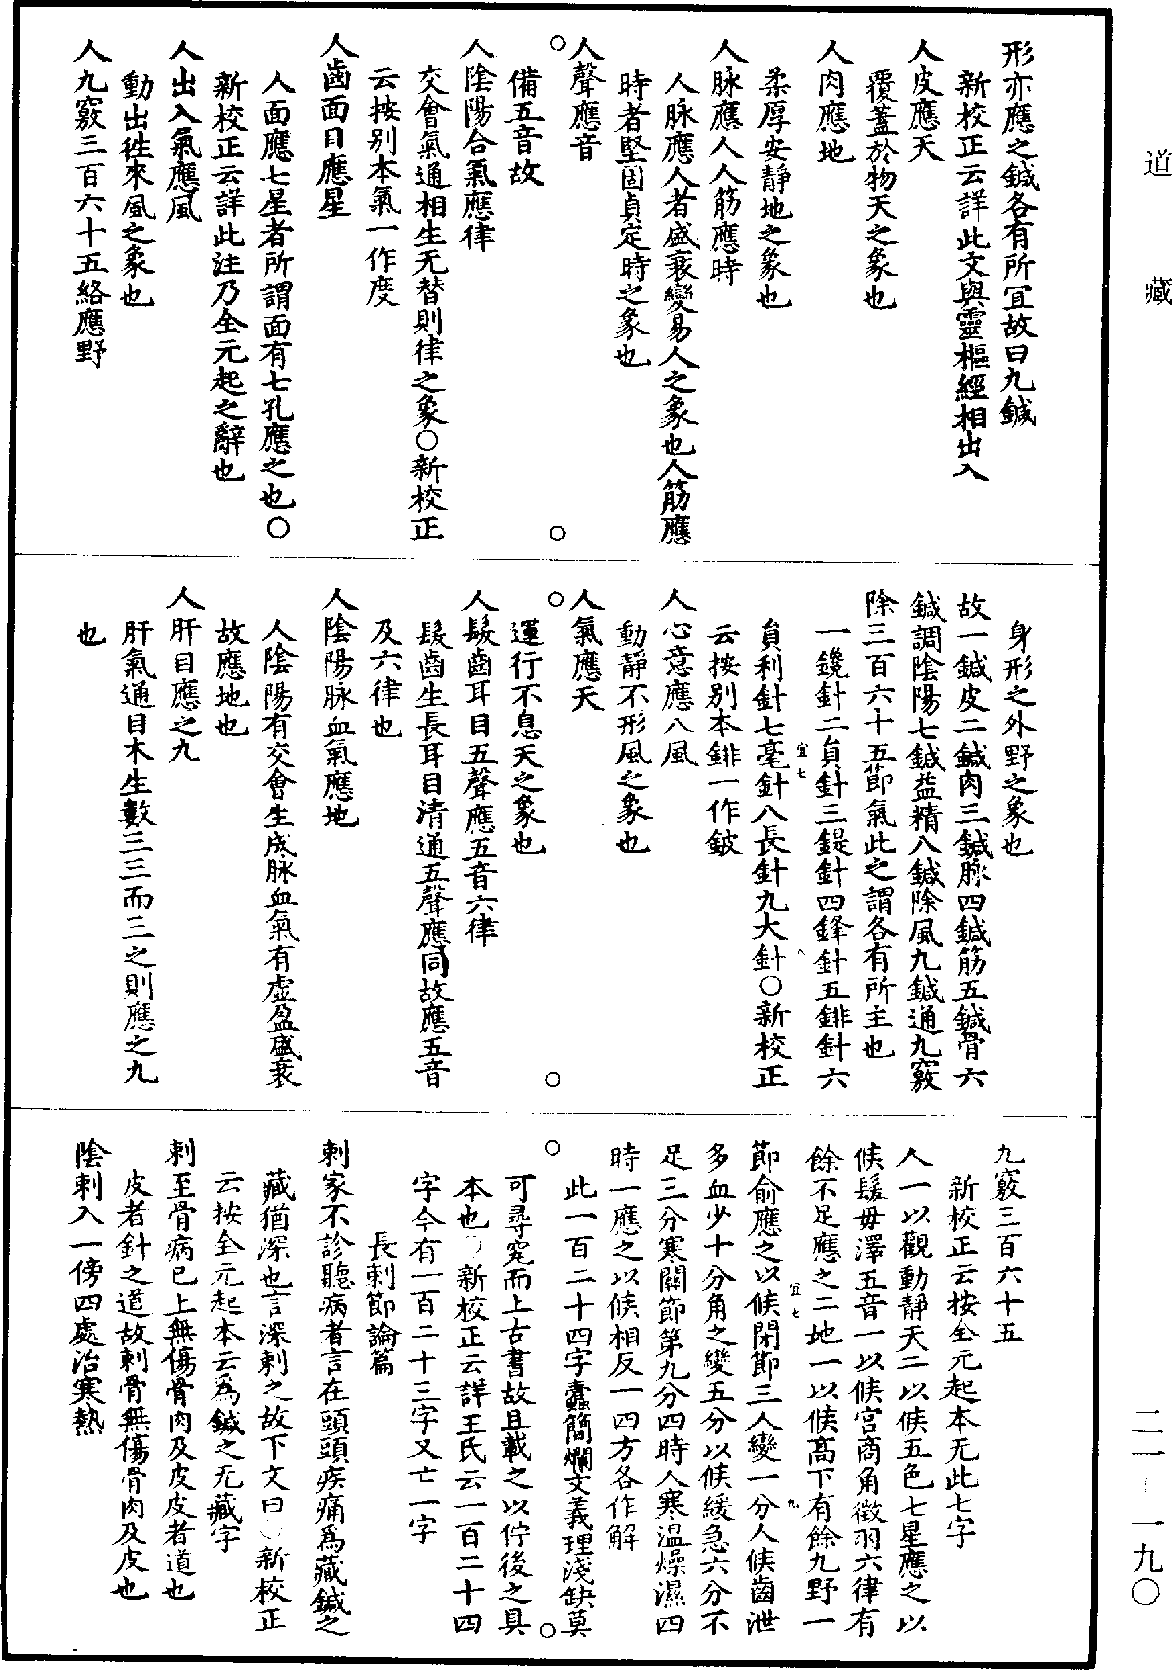 道藏
形亦應之鍼各有所宜故曰九鍼
新校正云詳此文與靈樞經相出入
人皮應天
覆蓋於物天之象也
人肉應地
柔厚安靜地之象也
人脉應人人筋應時
人脉應人者盛衰變易人之象也人筋應
時者堅固貞定時之象也
人聲應音
備五音故
人陰陽合氣應律
交會氣通相生无替則律之象○新校正
云按别本氣一作度
人齒面目應星
人面應七星者所謂面有七孔應之也○
新校正云詳此注乃全元起之辭也
人出入氣應風
動出徃來風之象也
人九竅三百六十五絡應野
身形之外野之象也
故一鍼皮二鍼肉三鍼脉四鍼筋五鍼骨六
鍼調陰陽七鍼益精八鍼除風九鍼通九竅
除三百六十五節氣此之謂各有所主也
一鑱針二員針三鍉針四鋒針五鈹針六
員利針七毫針八長針九大針○新校正
云按别本鈹一作鈹
人心意應八風
動靜不形風之象也
人氣應天
運行不息天之象也
人髮齒耳目五聲應五音六律
髮齒生長耳目清通五聲應同故應五音
及六律也
人陰陽脉血氣應地
人陰陽有交會生成脉血氣有虚盈盛衰
故應地也
人肝目應之九
肝氣通目木生數三三而三之則應之九
也
九竅三百六十五
新校正云按全元起本无此七字
人一以觀動靜天二以候五色七星應之以
候髮毋澤五音一以候宫商角徵羽六律有
餘不足應之二地一以候高下有餘九野一
節俞應之以候閉節三人變一分人候齒泄
多血少十分角之變五分以候緩急六分不
足三分寒關節第九分四時人寒温燥濕四
時一應之以候相反一四方各作解
此一百二十四字蠹簡爛文義理淺缺莫
可尋究而上古書故且載之以佇後之具
本也○新校正云詳王氏云一百二十四
字今有一百二十三字又亡一字
長刺節論篇
刺家不診聽病者言在頭頭疾痛爲藏鍼之
藏猶深也言深刺之故下文曰○新校正
云按全元起本云爲鍼之无藏字
刺至骨病已上無傷骨肉及皮皮者道也
皮者針之道故刺骨無傷骨肉及皮也
陰刺入一傍四處治寒熱
二一一一九〇